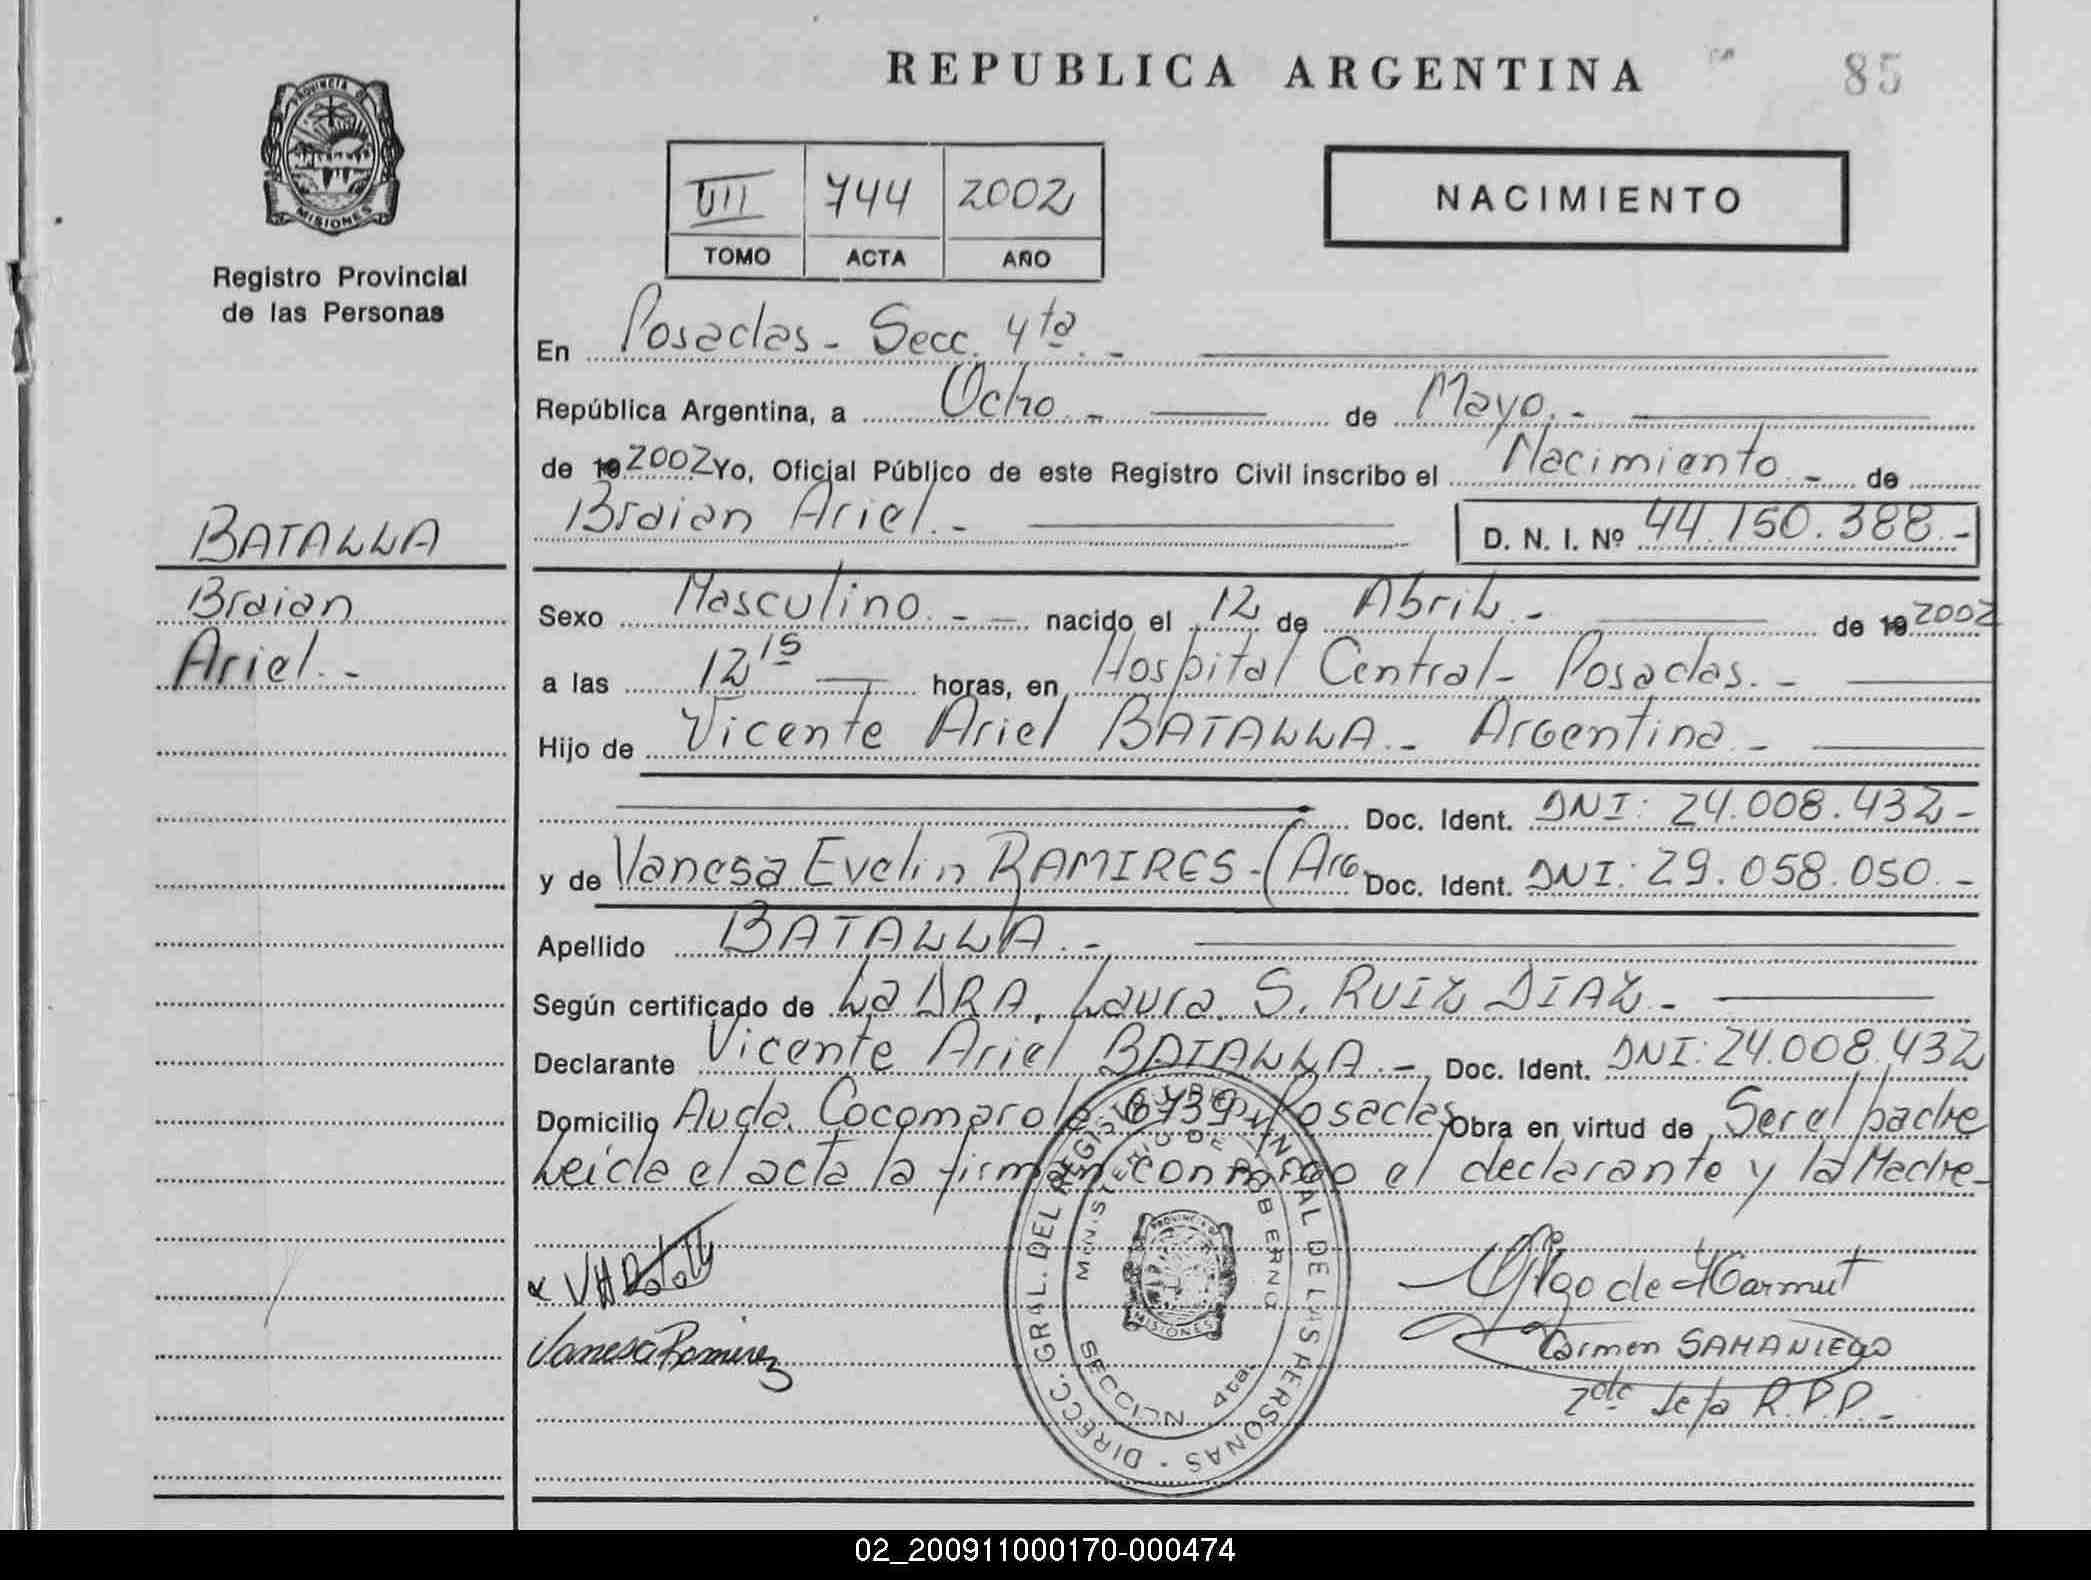 REPUBLICA ARGENTINA
85
PROVINCIA DE
MISIONES
Registro Provincial
de las Personas
VII 744 2002
TOMO ACTA AÑO
NACIMIENTO
En Posadas - Secc. 4ta. -
República Argentina, a Ocho. - de Mayo. -
de 19 2002 Yo, Oficial Público de este Registro Civil inscribo el Nacimiento. - de
Braian Ariel. - D. N. I. Nº 44.150.388. -
BATALLA
Braian
Ariel. -
Sexo Masculino. - - nacido el 12 de Abril. - de 19 2002
a las 12 15 horas, en Hospital Central - Posadas. -
Hijo de Vicente Ariel BATALLA. - Argentina -
Doc. Ident. DNI: 24.008.432 -
y de Vanesa Evelin RAMIRES - (Arg. Doc. Ident. DNI: 29.058.050. -
Apellido BATALLA. -
Según certificado de La DRA. Laura. S. RUIZ DIAZ. -
Declarante Vicente Ariel BATALLA. - Doc. Ident. DNI: 24.008.432
Domicilio Avda. Cocomarola 6739 - Posadas Obra en virtud de Ser el padre
Leida el acta la firman conmigo el declarante y la Madre -
Vanesa Ramirez
Carmen SAMANIEGO
2da Jefa R.P.P. -
DIRECC. GRAL. DEL REGISTRO PROVINCIAL DE LAS PERSONAS -
MINISTERIO DE GOBIERNO
PROVINCIA DE
MISIONES
SECCION 4ta.
02_200911000170-000474